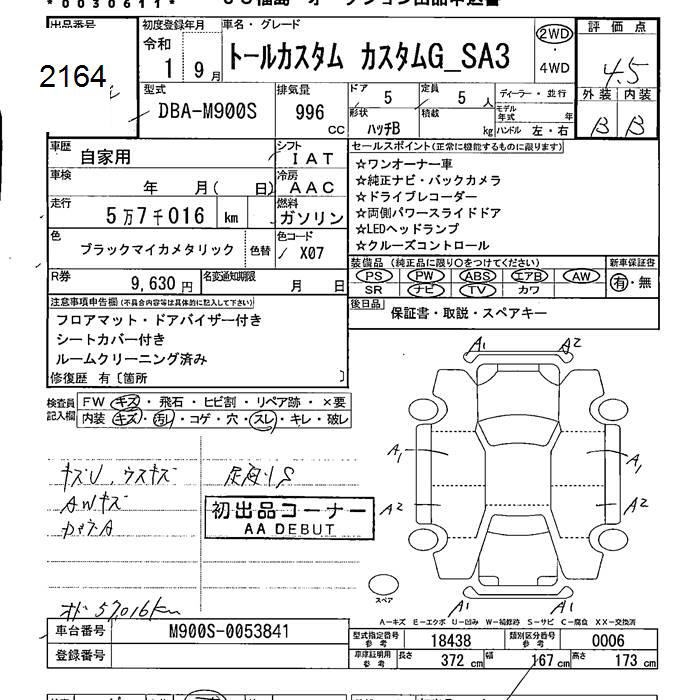 *0030611*
出品番号 2164
初度登録年月 令和 1 9月
車名・グレード トールカスタム カスタムG_SA3
2WD ・ 4WD
評価点 4.5
外装 内装
B B
型式 DBA-M900S
排気量 996 CC
ドア 5
定員 5 人
形状 ハッチB
積載 kg
ディーラー・並行
モデル年式 年
ハンドル 左・右
車歴 自家用
シフト IAT
車検 年 月( 日)
冷房 AAC
走行 5万7千016 km
燃料 ガソリン
色 ブラックマイカメタリック 色替
色コード / X07
R券 9,630円
名変通知期限 月 日
セールスポイント(正常に機能するものに限ります)
☆ワンオーナー車
☆純正ナビ・バックカメラ
☆ドライブレコーダー
☆両側パワースライドドア
☆LEDヘッドランプ
☆クルーズコントロール
装備品 (純正品に限り○をつけてください) 新車保証書
PS PW ABS エアB AW 有・無
SR ナビ TV カワ
後日品 保証書・取説・スペアキー
注意事項申告欄(不具合内容等は具体的に記入して下さい)
フロアマット・ドアバイザー付き
シートカバー付き
ルームクリーニング済み
修復歴 有〔箇所 〕
検査員記入欄
FW キズ・飛石・ヒビ割・リペア跡・×要
内装 キズ・汚レ・コゲ・穴・スレ・キレ・破レ
キズU、ウスキズ
AWキズ
初出品コーナー
AA DEBUT
A1 A2
A1 A1
A2 A2
A1 A1
スペア
57016km
A-キズ E-エクボ U-凹み W-補修跡 S-サビ C-腐食 XX-交換済
車台番号 M900S-0053841
登録番号
型式指定番号 参考 18438
類別区分番号 参考 0006
車庫証明用 参考 長さ 372 cm 幅 167 cm 高さ 173 cm